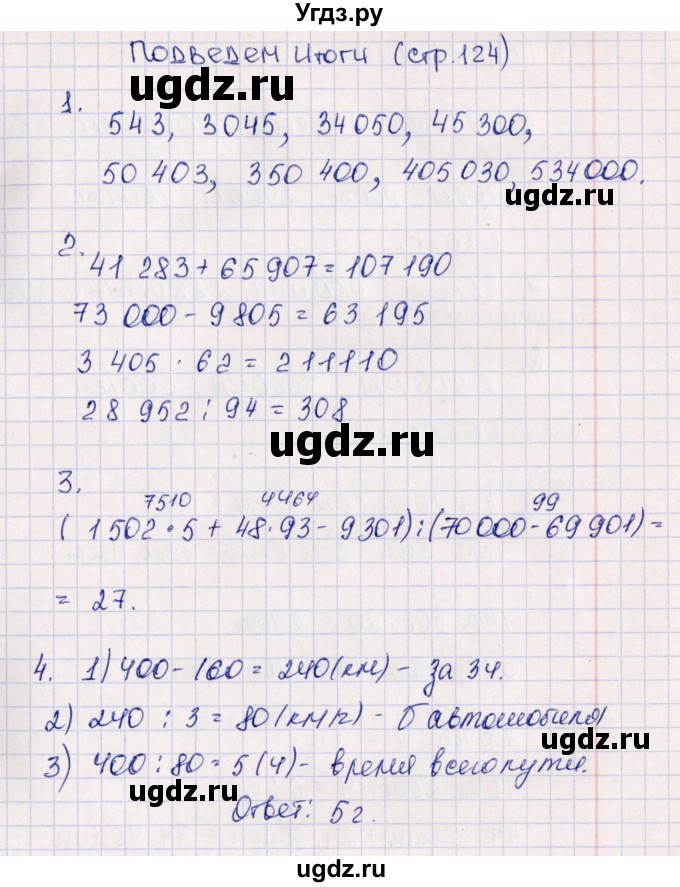 Угдз.ру
Подведем итоги (стр.124)
ugdz.ru
1.
543, 3045, 34050, 45 300,
50 403, 350 400, 405030, 534000.
ugdz.ru
2.
41 283 + 65 907 = 107 190
73 000 - 9 805 = 63 195
3 405 · 62 = 211110
28 952 : 94 = 308
ugdz.ru
3.
7510 4464 99
( 1 502 · 5 + 48 · 93 - 9 301) : (70 000 - 69 901) =
ugdz.ru
= 27.
4. 1) 400 - 160 = 240 (км) - за 3ч.
2) 240 : 3 = 80 (км/г) - б автомобиля
ugdz.ru
3) 400 : 80 = 5 (ч) - время всего пути.
ugdz.ru
Ответ: 5 г.
ugdz.ru